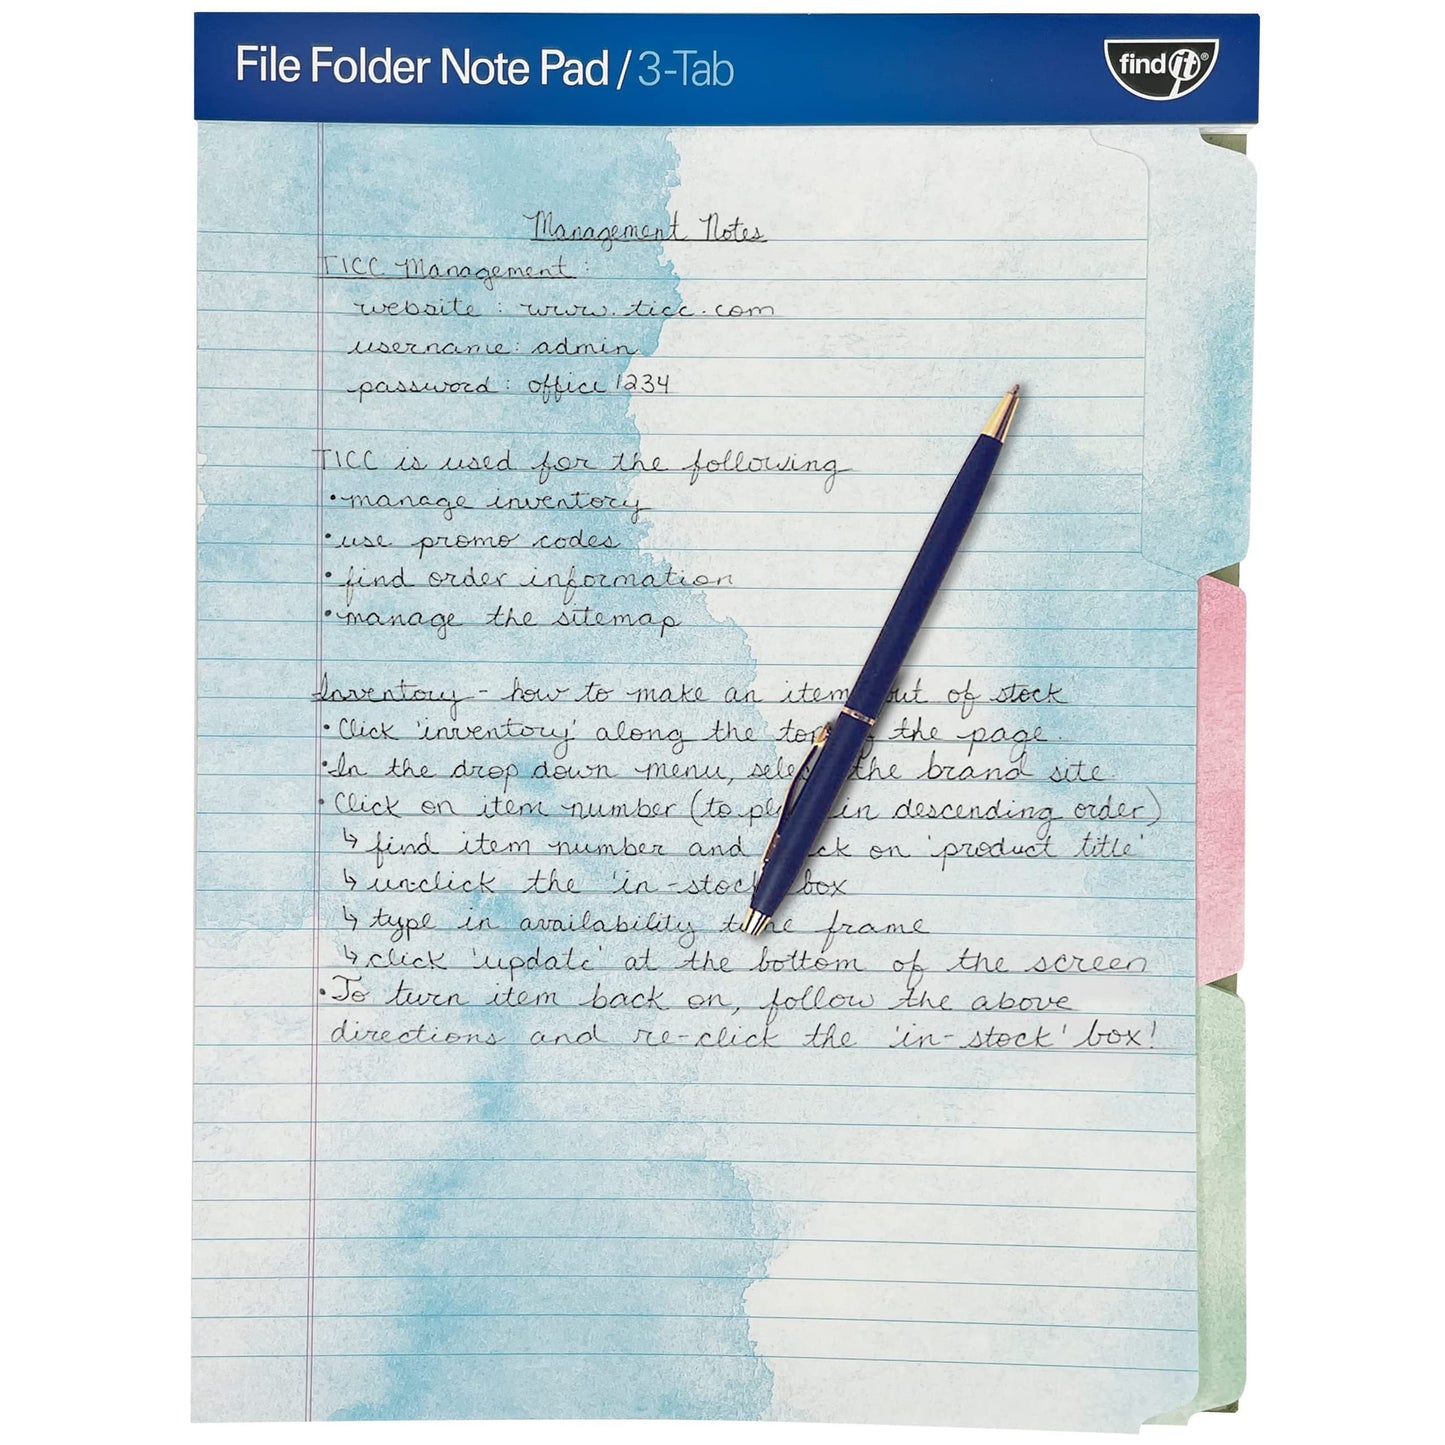 File Folder Note Pad / 3-Tab
find it®
Management Notes
TICC Management:
website: www.ticc.com
username: admin
password: office1234
TICC is used for the following
• manage inventory
• use promo codes
• find order information
• manage the sitemap
Inventory - how to make an item out of stock
• Click 'inventory' along the top of the page.
• In the drop down menu, select the brand site.
• Click on item number (to pl in descending order)
↳ find item number and ck on 'product title'
↳ unclick the 'in-stock' box
↳ type in availability time frame
↳ click 'update' at the bottom of the screen
• To turn item back on, follow the above
directions and re-click the 'in-stock' box!